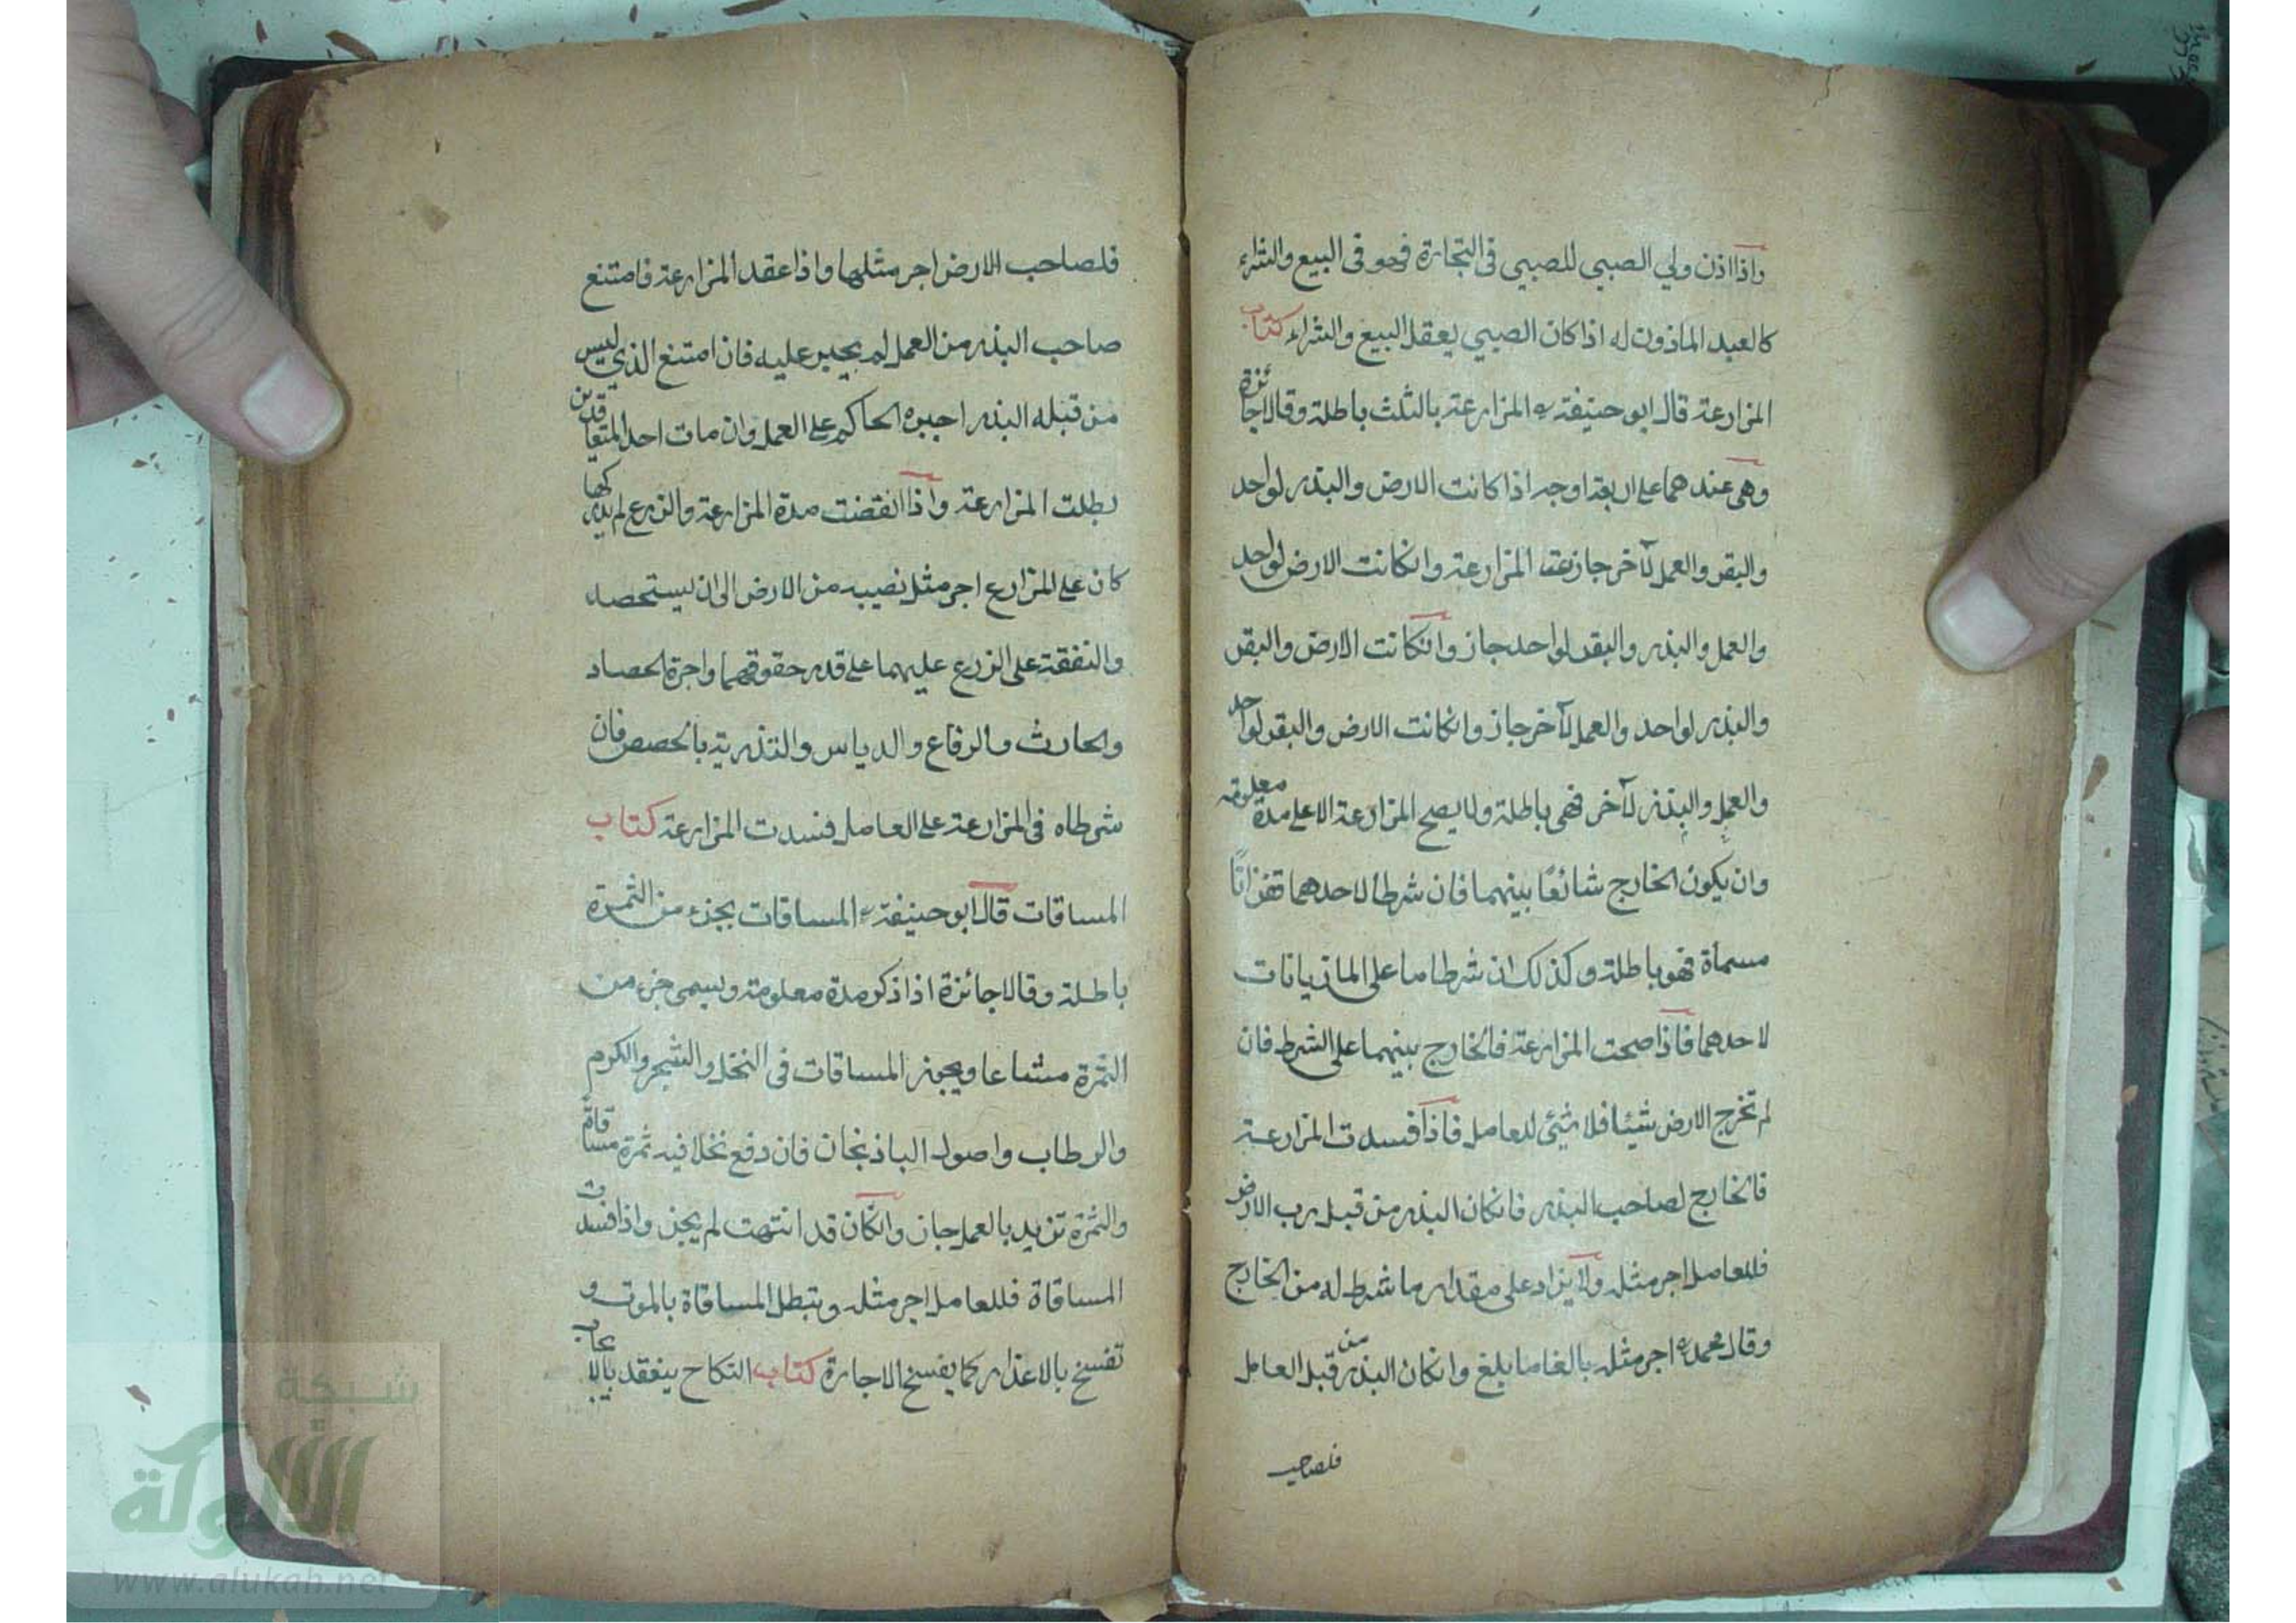 واذا اذن ولي الصبي للصبي في التجارة فهو في البيع والشراء
كالعبد الماذون له اذا كان الصبي يعقل البيع والشراء كتاب
المزارعة قال ابو حنيفة ره المزارعة بالثلث باطلة وقالا جائزة
وهي عندهما على اربعة اوجه اذا كانت الارض والبذر لواحد
والبقر والعمل لآخر جازت المزارعة وانكانت الارض لواحد
والعمل والبذر والبقر لواحد جاز وانكانت الارض والبقر
والبذر لواحد والعمل لآخر جاز وانكانت الارض والبقر لواحد
والعمل والبذر لآخر فهي باطلة ولا يصح المزارعة الا على مدة معلومة
وان يكون الخارج شائعًا بينهما فان شرطا لاحدهما قفزانًا
مسماة فهو باطلة وكذلك ان شرطا ما على الماذيانات
لاحدهما فاذا صحت المزارعة فالخارج بينهما على الشرط فان
لم تخرج الارض شيئا فلا شيئ للعامل فاذا فسدت المزارعة
فالخارج لصاحب البذر فانكان البذر من قبل رب الارض
فللعامل اجر مثله ولا يزاد على مقدار ما شرط له من الخارج
وقال محمد ره اجر مثله بالغا ما بلغ وانكان البذر من قبل العامل
فلصاحب
فلصاحب الارض اجر مثلها واذا عقد المزارعة فامتنع
صاحب البذر من العمل لم يجبر عليه فان امتنع الذي ليس
من قبله البذر اجبره الحاكم على العمل وان مات احد المتعاقدين
بطلت المزارعة واذا انقضت مدة المزارعة والزرع لم يدركها
كان على المزارع اجر مثل نصيبه من الارض الى ان يستحصد
والنفقة على الزرع عليهما على قدر حقوقهما واجرة الحصاد
والحارث والرفاع والدياس والتذرية بالحصص فان
شرطاه في المزارعة على العامل فسدت المزارعة كتاب
المساقات قال ابو حنيفة ره المساقات بجزء من الثمرة
باطلة وقالا جائزة اذا ذكر مدة معلومة ويسمى جزء من
الثمرة مشاعا ويجوز المساقات في النخل والشجر والكرم
والرطاب واصول الباذنجان فان دفع نخلا فيه ثمرة مساقاة
والثمرة تزيد بالعمل جاز وانكان قد انتهت لم يجز واذا فسدت
المساقاة فللعامل اجر مثله وتبطل المساقاة بالموت و
تفسخ بالاعذار كما يفسخ الاجارة كتاب النكاح ينعقد بالايجاب
شبكة
الألوكة
www.alukah.net